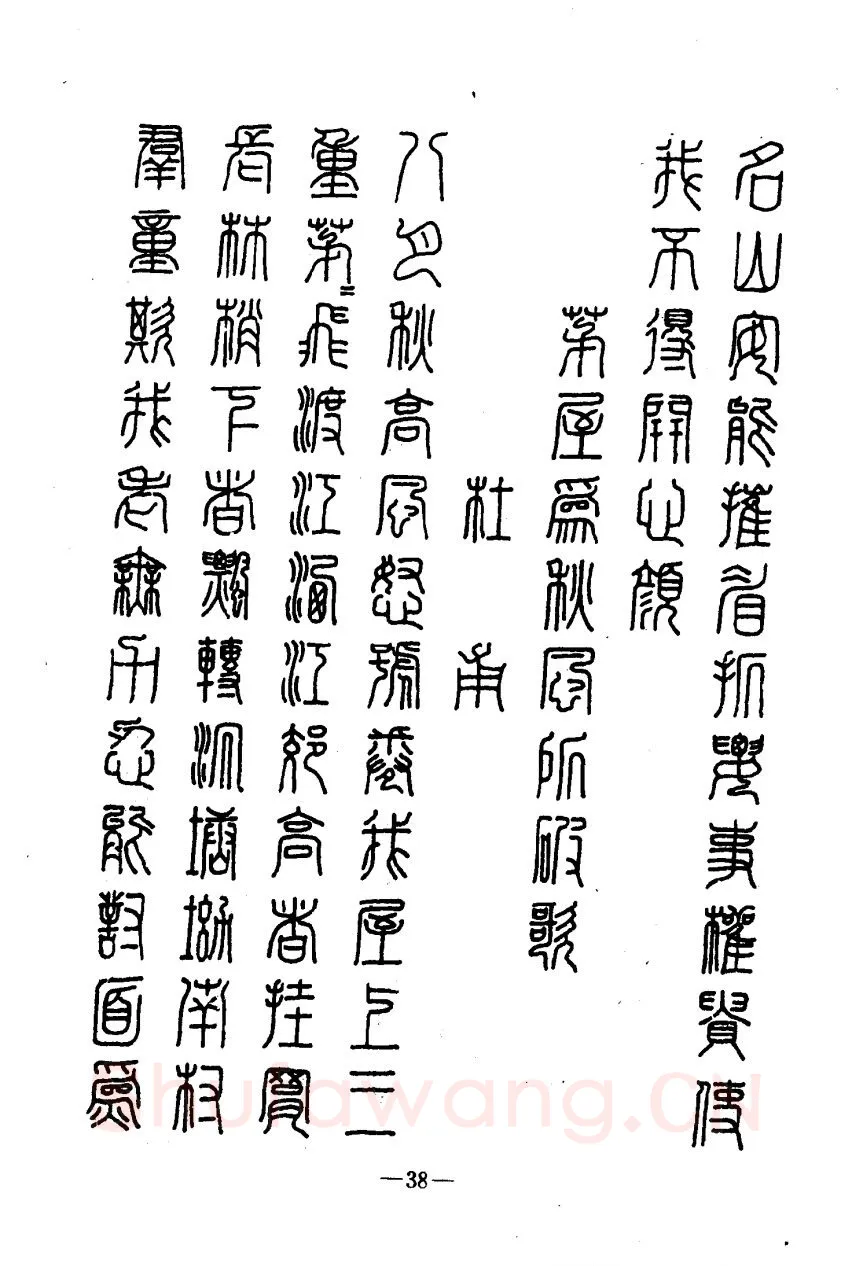 名山安能摧眉折要事權貴使
我不得開心顏
茅屋爲秋風所破歌
杜甫
八月秋高風怒號卷我屋上三
重茅=飛渡江洒江郊高者挂罥
長林梢下者飄轉沉塘坳南村
羣童欺我老無力忍能對面爲
—38—
shufawang.CN